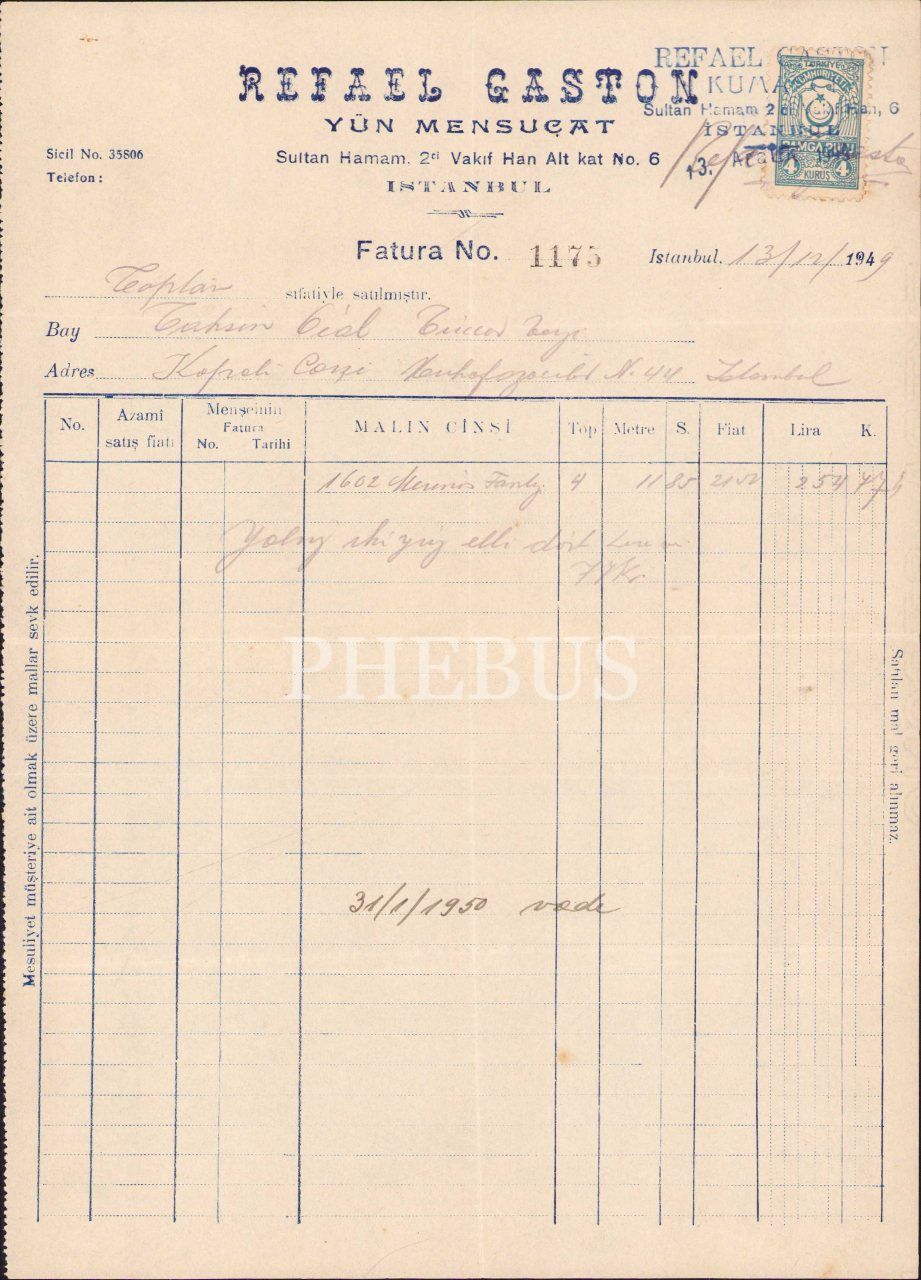 REFAEL GASTON
YÜN MENSUÇAT
Sultan Hamam. 2ci Vakıf Han Alt kat No. 6
ISTANBUL
Sicil No. 35806
Telefon :
REFAEL GASTON
KUMA
Sultan Hamam 2 ci Vakıf Han, 6
İSTANBUL
13. Aralık 1949
TÜRKİYE
CUMHURİYETİ
DAMGA PULU
4 KURUŞ 4
Fatura No. 1175
Istanbul. 13/12/1949
Toptan sıfatiyle satılmıştır.
Bay Tahsin
Adres No 44 Istanbul
No. Azamî satış fiatı Menşeinin Fatura No. Tarihi MALIN CİNSİ Top Metre S. Fiat Lira K.
1602 4 11 85 2150 254
Yalnız iki yüz elli dört
PHEBUS
31/1/1950 vade
Mesuliyet müşteriye ait olmak üzere mallar sevk edilir.
Satılan mal geri alınmaz.